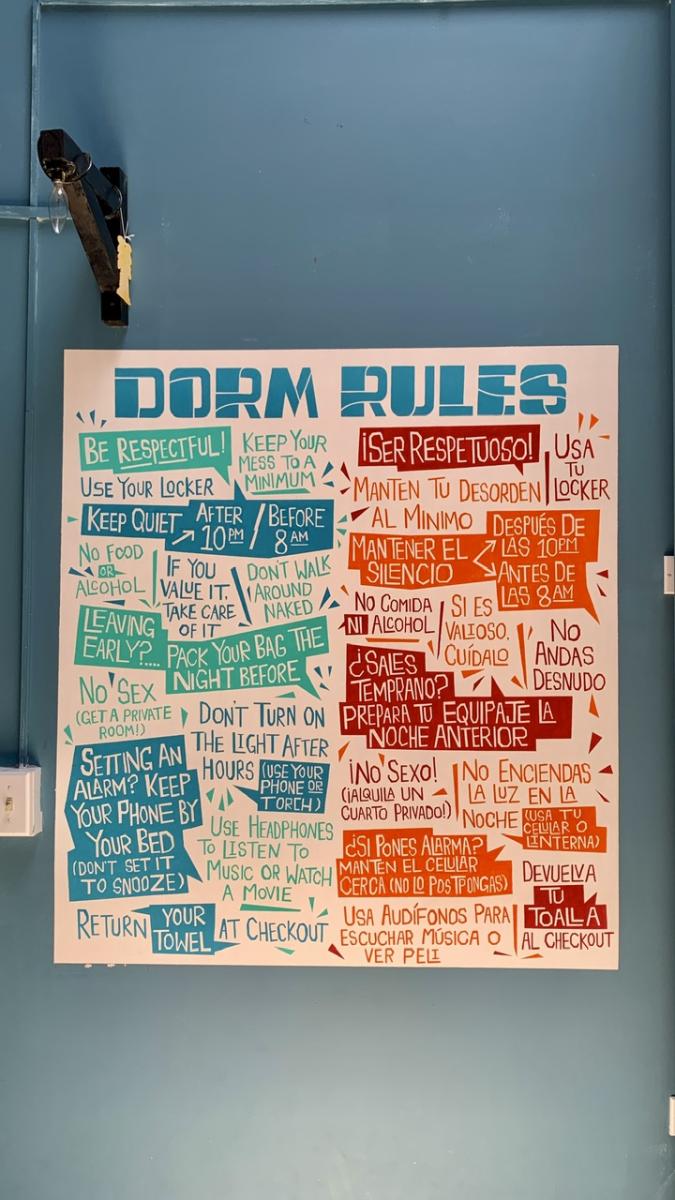 DORM RULES
BE RESPECTFUL!
KEEP YOUR
MESS TO A
MINIMUM
USE YOUR LOCKER
KEEP QUIET AFTER 10PM / BEFORE 8AM
NO FOOD
OR
ALCOHOL
IF YOU
VALUE IT,
TAKE CARE
OF IT
DON'T WALK
AROUND
NAKED
LEAVING
EARLY?....
PACK YOUR BAG THE
NIGHT BEFORE
NO SEX
(GET A PRIVATE
ROOM!)
DON'T TURN ON
THE LIGHT AFTER
HOURS (USE YOUR
PHONE OR
TORCH)
SETTING AN
ALARM? KEEP
YOUR PHONE BY
YOUR BED
(DON'T SET IT
TO SNOOZE)
USE HEADPHONES
TO LISTEN TO
MUSIC OR WATCH
A MOVIE
RETURN YOUR
TOWEL AT CHECKOUT
¡SER RESPETUOSO!
USA
TU
LOCKER
MANTEN TU DESORDEN
AL MINIMO
MANTENER EL
SILENCIO
DESPUÉS DE
LAS 10PM
ANTES DE
LAS 8AM
NO COMIDA
NI ALCOHOL
SI ES
VALIOSO,
CUÍDALO
NO
ANDAS
DESNUDO
¿SALES
TEMPRANO?
PREPARA TU EQUIPAJE LA
NOCHE ANTERIOR
¡NO SEXO!
(¡ALQUILA UN
CUARTO PRIVADO!)
NO ENCIENDAS
LA LUZ EN LA
NOCHE (USA TU
CELULAR O
LINTERNA)
¿SI PONES ALARMA?
MANTEN EL CELULAR
CERCA (NO LO POSTPONGAS)
DEVUELVA
TU
TOALLA
AL CHECKOUT
USA AUDÍFONOS PARA
ESCUCHAR MÚSICA O
VER PELI